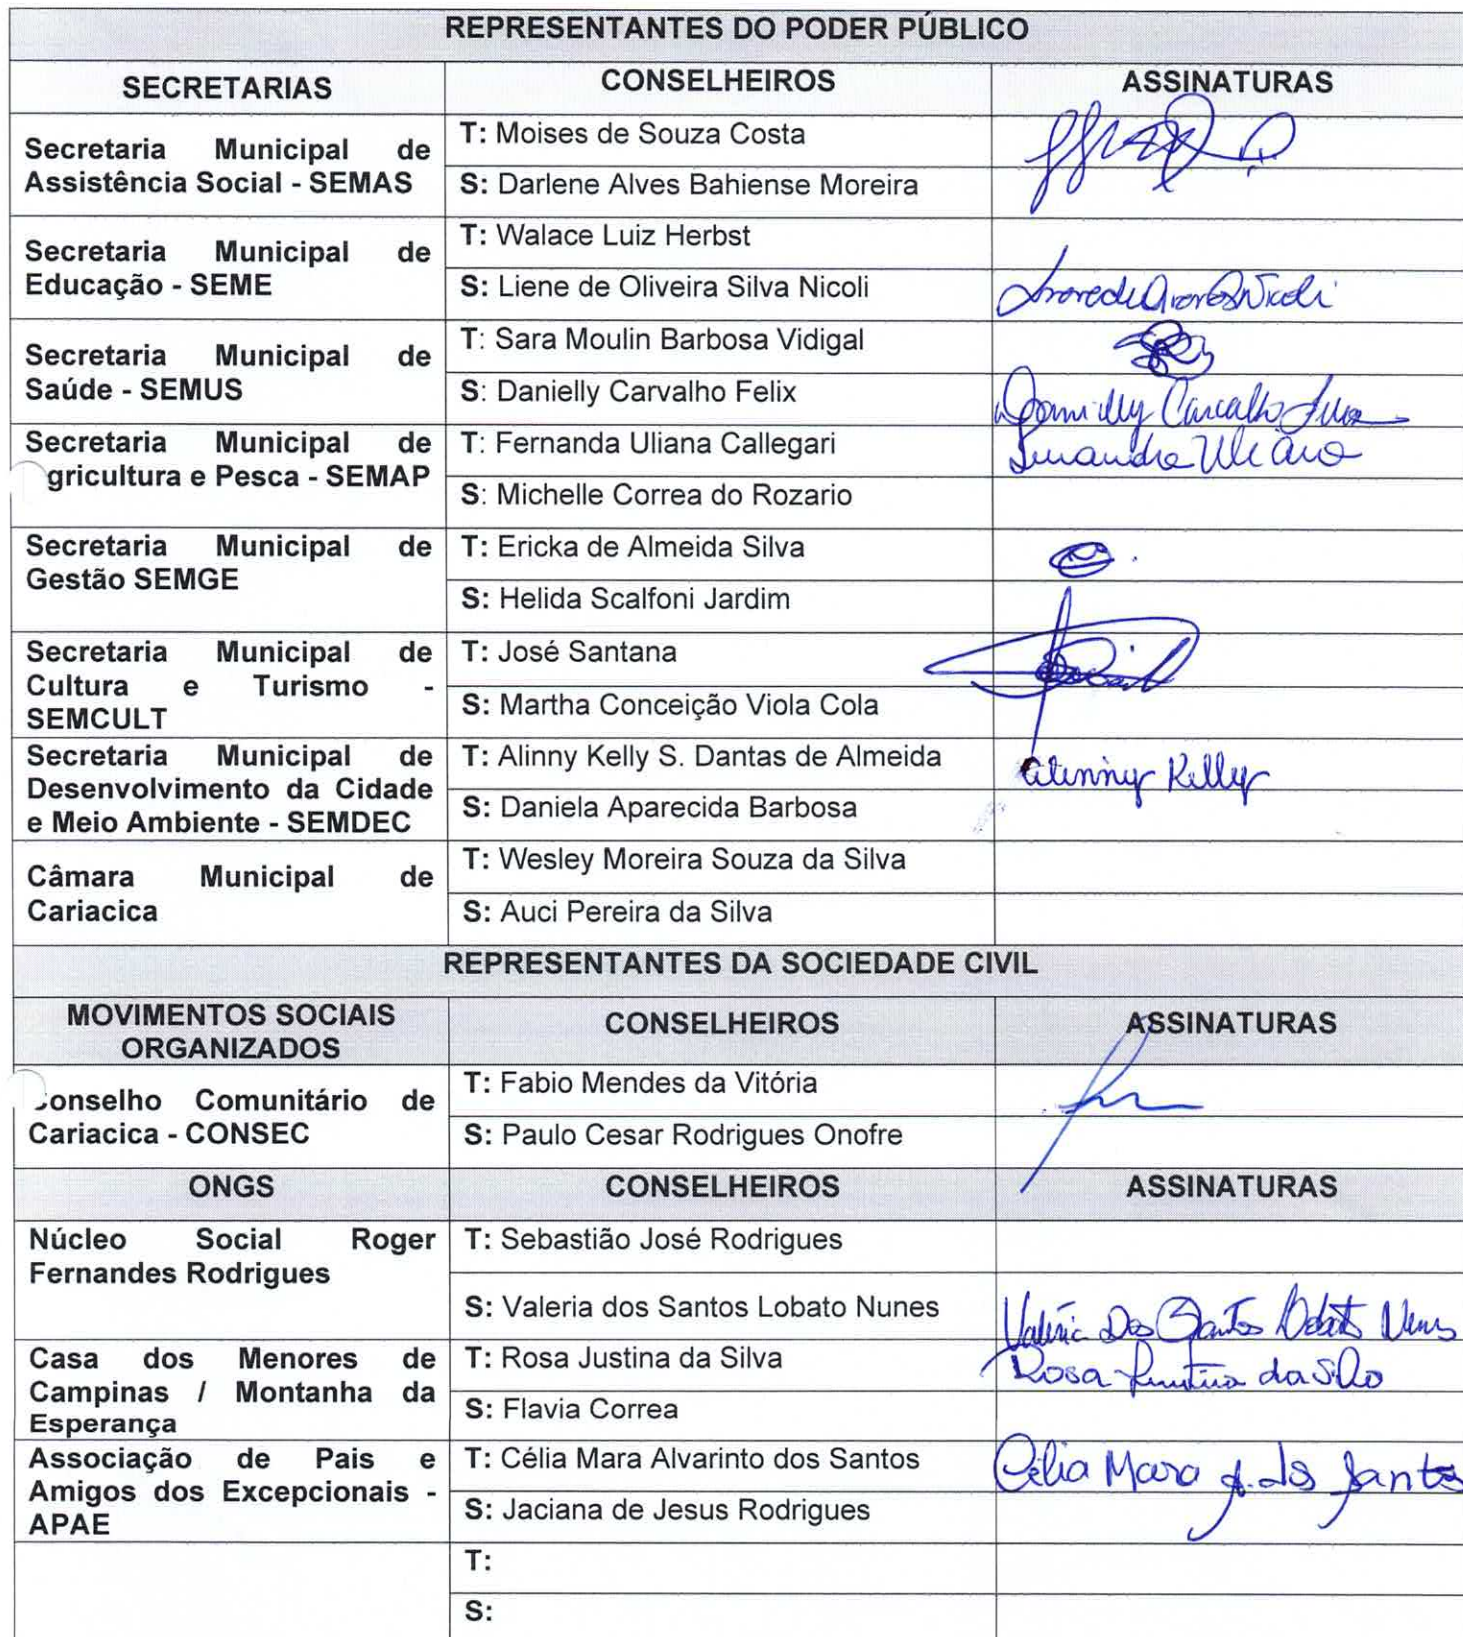 REPRESENTANTES DO PODER PÚBLICO
SECRETARIAS CONSELHEIROS ASSINATURAS
Secretaria Municipal de
Assistência Social - SEMAS
T: Moises de Souza Costa
S: Darlene Alves Bahiense Moreira
Secretaria Municipal de
Educação - SEME
T: Walace Luiz Herbst
S: Liene de Oliveira Silva Nicoli
Nicoli
Secretaria Municipal de
Saúde - SEMUS
T: Sara Moulin Barbosa Vidigal
S: Danielly Carvalho Felix
Danielly Carvalho
Secretaria Municipal de
gricultura e Pesca - SEMAP
T: Fernanda Uliana Callegari
Fernanda Uliana
S: Michelle Correa do Rozario
Secretaria Municipal de
Gestão SEMGE
T: Ericka de Almeida Silva
S: Helida Scalfoni Jardim
Secretaria Municipal de
Cultura e Turismo -
SEMCULT
T: José Santana
S: Martha Conceição Viola Cola
Secretaria Municipal de
Desenvolvimento da Cidade
e Meio Ambiente - SEMDEC
T: Alinny Kelly S. Dantas de Almeida
Alinny Kelly
S: Daniela Aparecida Barbosa
Câmara Municipal de
Cariacica
T: Wesley Moreira Souza da Silva
S: Auci Pereira da Silva
REPRESENTANTES DA SOCIEDADE CIVIL
MOVIMENTOS SOCIAIS
ORGANIZADOS
CONSELHEIROS ASSINATURAS
onselho Comunitário de
Cariacica - CONSEC
T: Fabio Mendes da Vitória
S: Paulo Cesar Rodrigues Onofre
ONGS CONSELHEIROS ASSINATURAS
Núcleo Social Roger
Fernandes Rodrigues
T: Sebastião José Rodrigues
S: Valeria dos Santos Lobato Nunes
Valéria Dos Santos Lobato Nunes
Casa dos Menores de
Campinas / Montanha da
Esperança
T: Rosa Justina da Silva
Rosa Justina da Silva
S: Flavia Correa
Associação de Pais e
Amigos dos Excepcionais -
APAE
T: Célia Mara Alvarinto dos Santos
Célia Mara A. dos Santos
S: Jaciana de Jesus Rodrigues
T:
S: